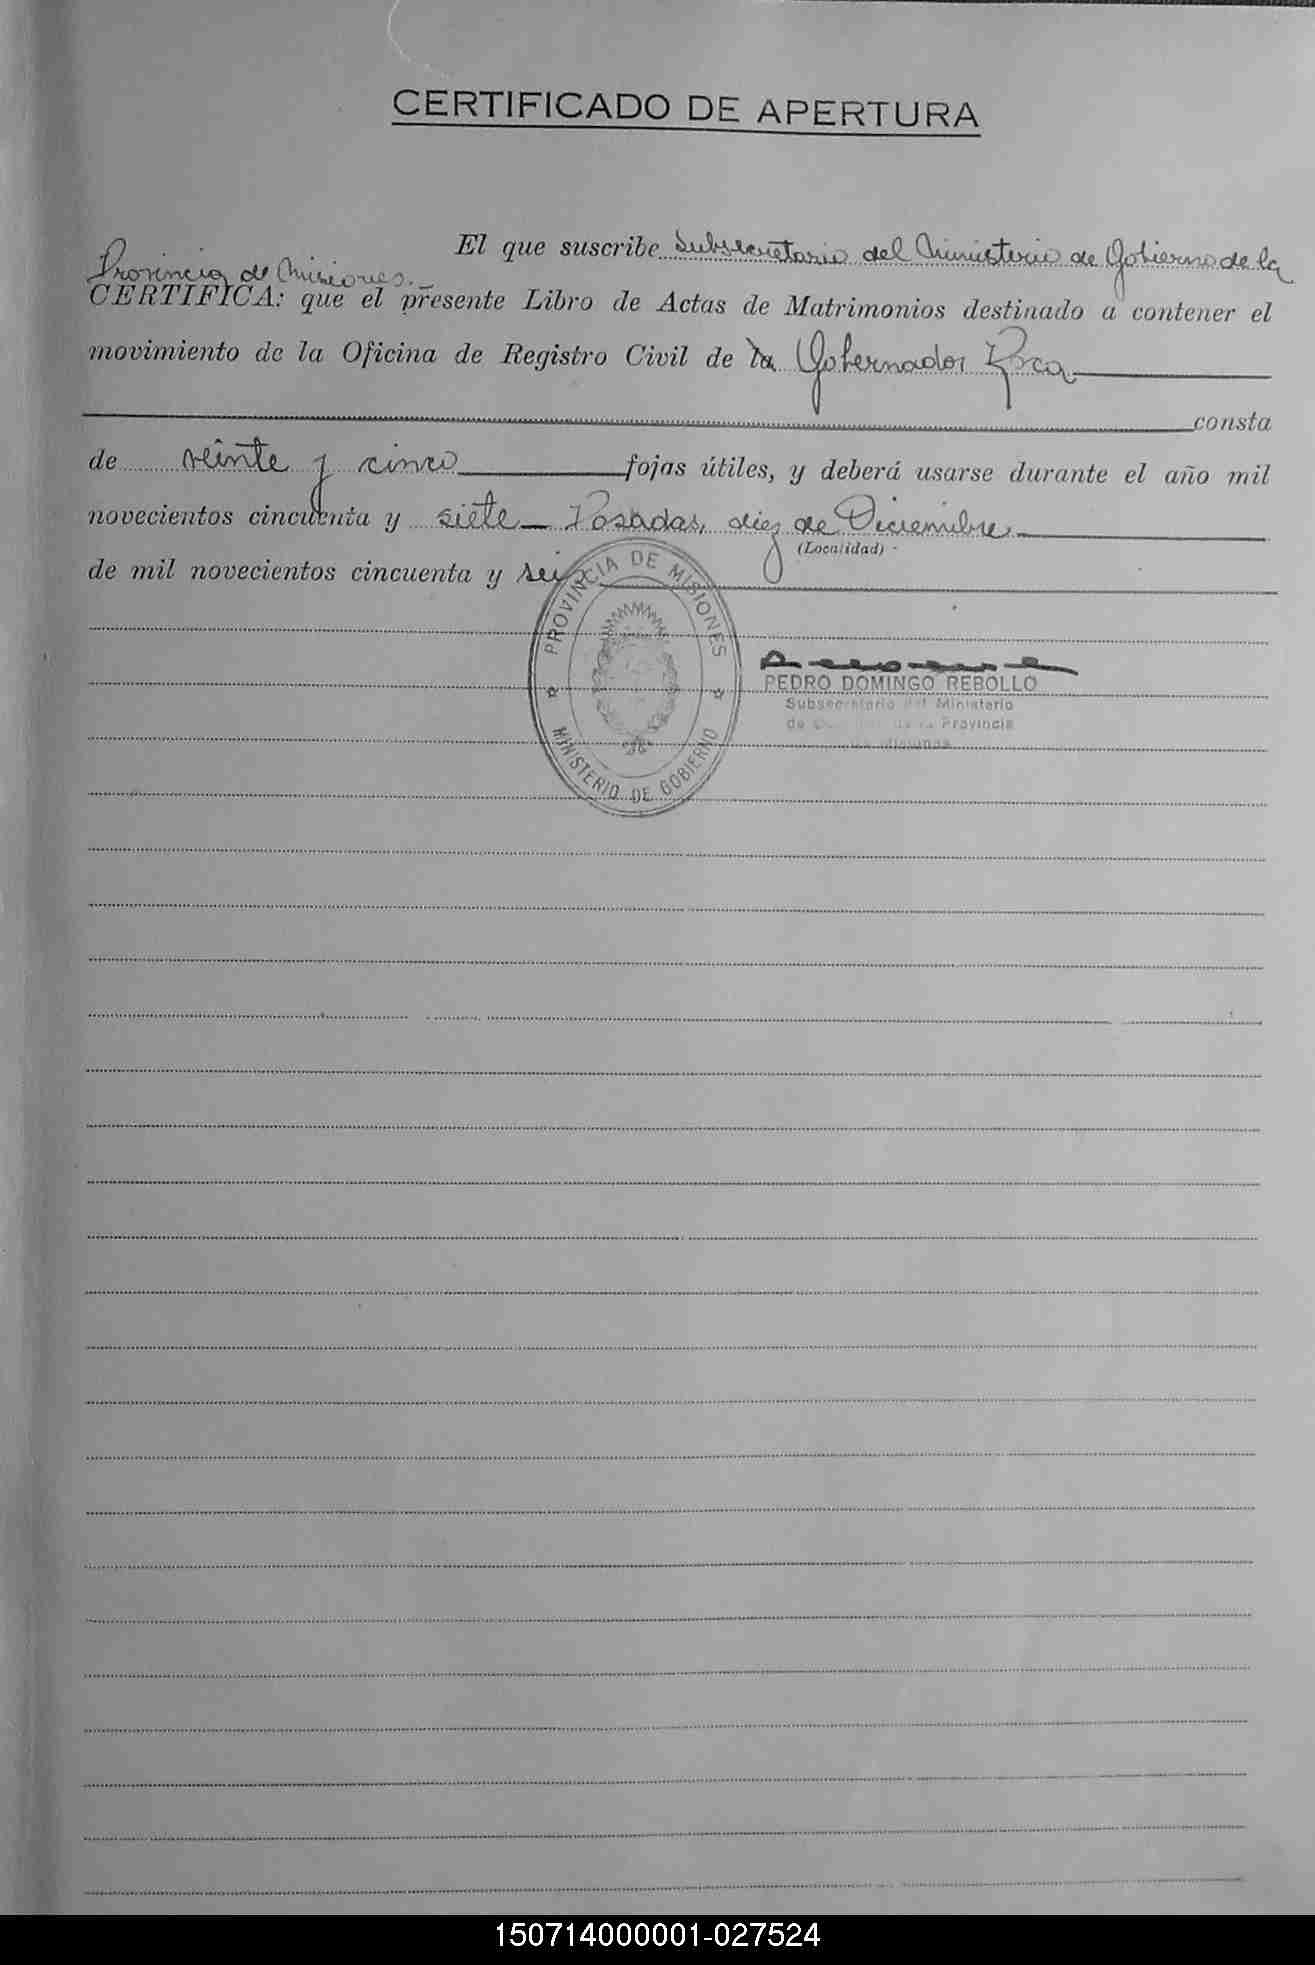 CERTIFICADO DE APERTURA
El que suscribe Subsecretario del Ministerio de Gobierno de la
Provincia de Misiones.—
CERTIFICA: que el presente Libro de Actas de Matrimonios destinado a contener el
movimiento de la Oficina de Registro Civil de la Gobernador Roca
consta
de veinte y cinco fojas útiles, y deberá usarse durante el año mil
novecientos cincuenta y siete — Posadas, diez de Diciembre
(Localidad)
de mil novecientos cincuenta y seis
PROVINCIA DE MISIONES
MINISTERIO DE GOBIERNO
PEDRO DOMINGO REBOLLO
Subsecretario del Ministerio
de Gobierno de la Provincia
de Misiones
150714000001-027524